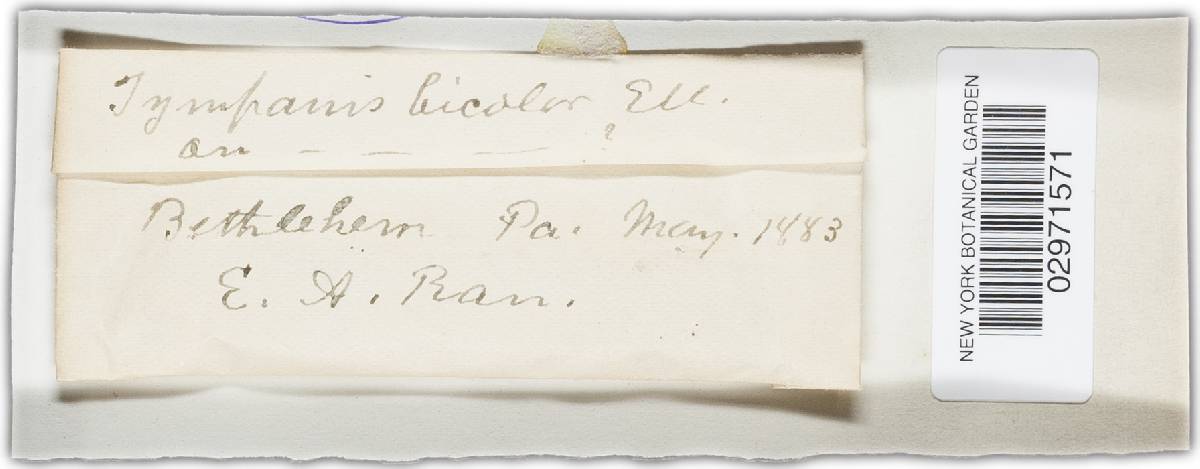 Tympanis bicolor Ell.
on — — — ?
Bethlehem Pa. May. 1883
E. A. Rau.
NEW YORK BOTANICAL GARDEN
02971571